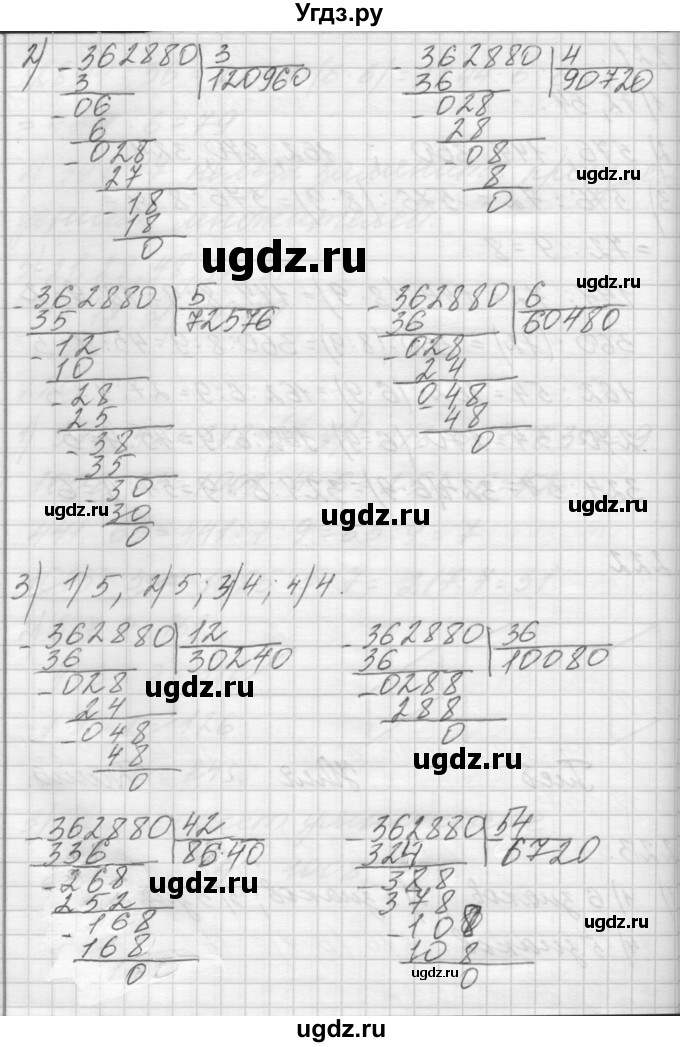 Угдз.ру
2) - 362880 | 3    - 362880 | 4
3    120960    36    90720
- 06    - 028
6    28
- 028    - 08
27    8    ugdz.ru
- 18    0
18
0    ugdz.ru
ugdz.ru
- 362880 | 5    - 362880 | 6
35    72576    36    60480
- 12    - 028
10    24
- 28    048
25    - 48
- 38    0
35
- 30    ugdz.ru
ugdz.ru    30    ugdz.ru
0
3) 1) 5, 2) 5; 3) 4; 4) 4.
- 362880 | 12    - 362880 | 36
36    30240    36    10080
- 028    ugdz.ru    - 0288
24    288
- 048    0
48    ugdz.ru
0
- 362880 | 42    - 362880 | 54
336    8640    324    6720
- 268    ugdz.ru    - 388
252    378
- 168    - 108    ugdz.ru
168    108
0    ugdz.ru    0
ugdz.ru